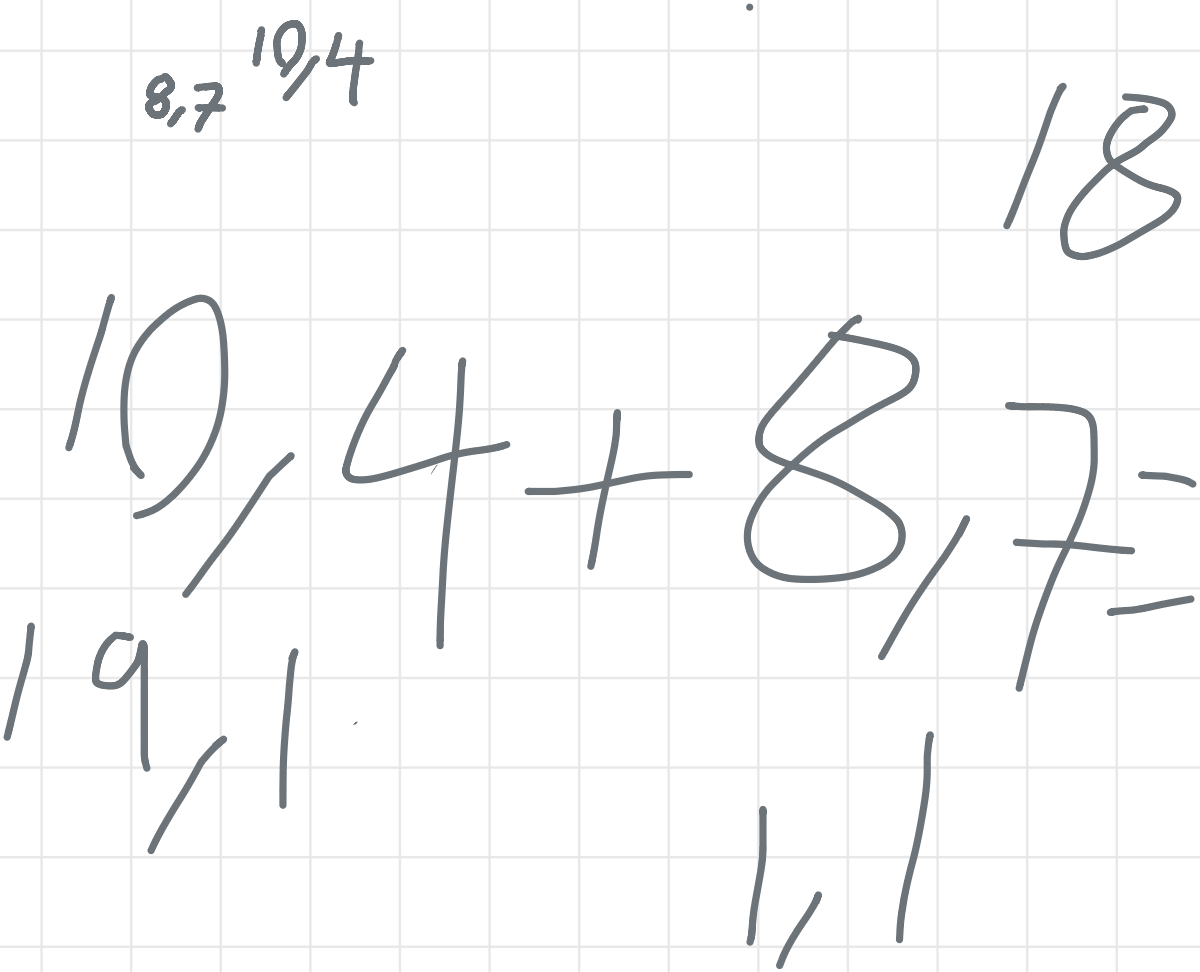 8,7 10,4
18
10,4+8,7=
19,1
1,1